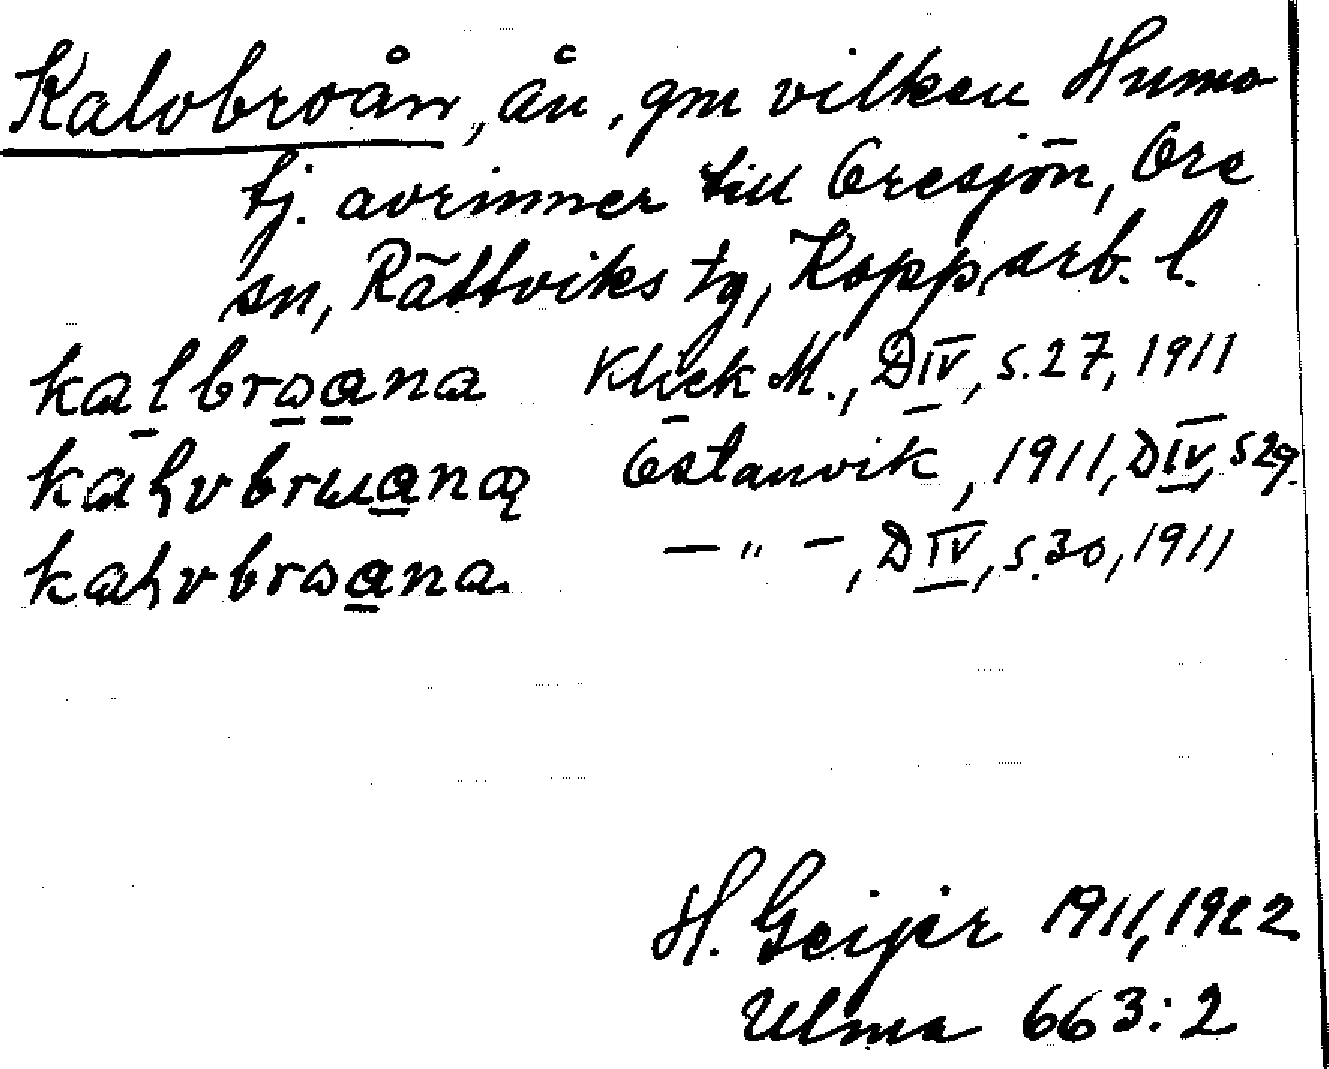 Kalvbroån, ån, gm vilken Humo
tj. avrinner till Oresjön, Ore
sn, Rättviks tg, Kopparb. l.
kalbrωɑna Klick M., D IV, s. 27, 1911
kaɧvbrɯɑną Östanvik, 1911, D IV, s 29.
kaɧvbrωɑna. —"—, D IV, s. 30, 1911
H. Geijer 1911, 1922
Ulma 663:2